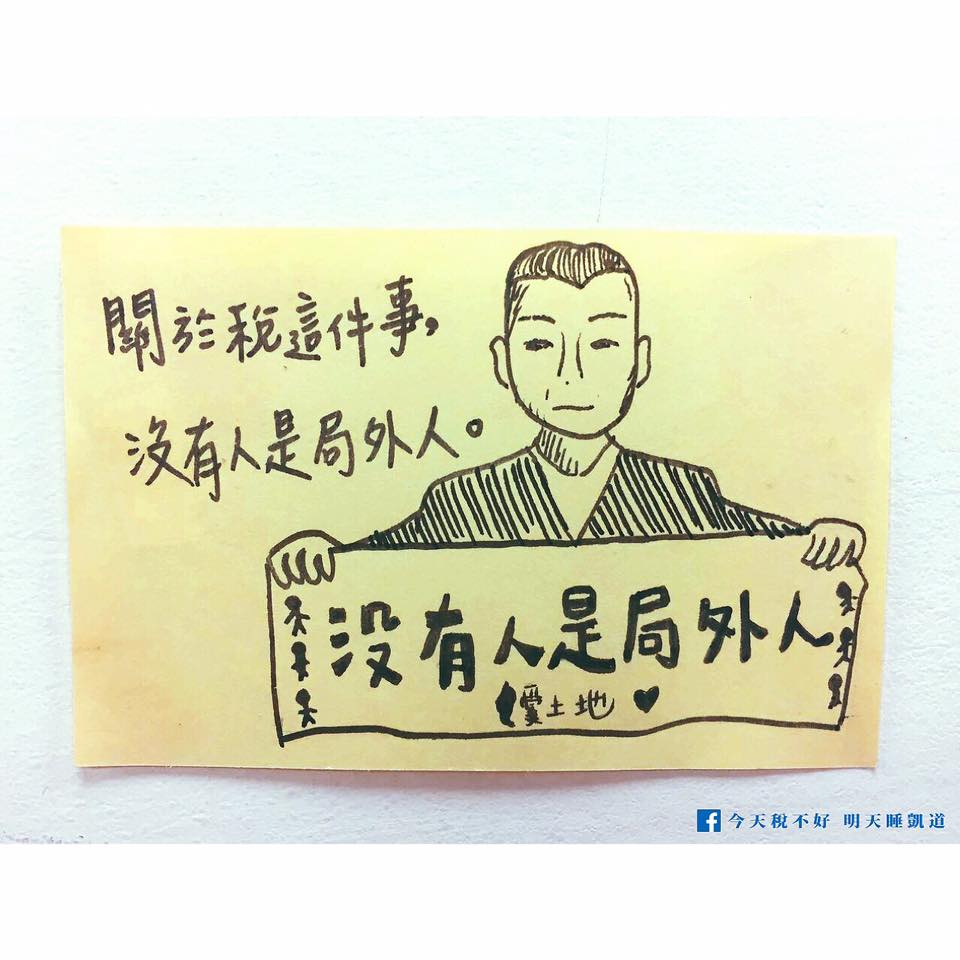 關於稅這件事,
沒有人是局外人。
沒有人是局外人
愛土地
今天稅不好 明天睡凱道